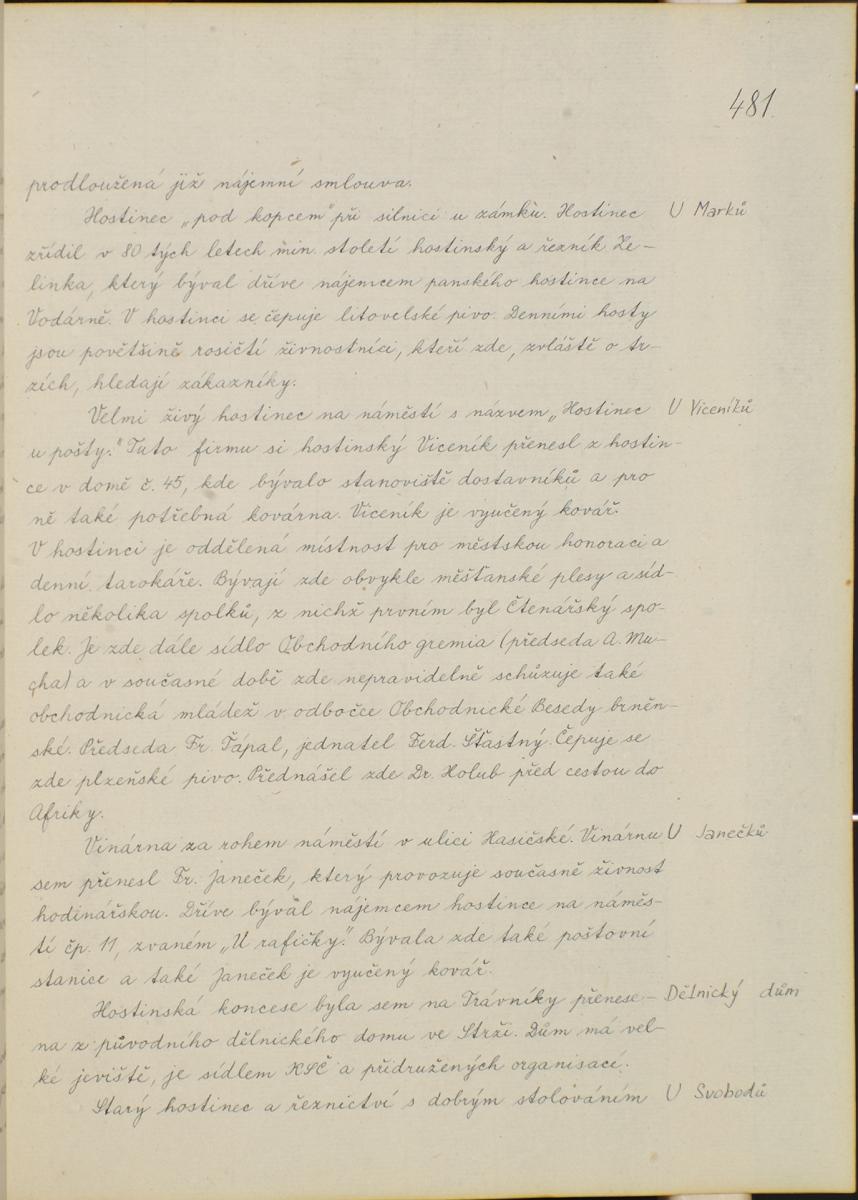 481.
prodloužená již nájemní smlouva.
Hostinec „pod kopcem" při silnici u zámku. Hostinec U Marků
zřídil v 80 tých letech min. století hostinský a řezník Ze-
linka, který býval dříve nájemcem panského hostince na
Vodárně. V hostinci se čepuje litovelské pivo. Denními hosty
jsou povětšině rosičtí živnostníci, kteří zde, zvláště o tr-
zích, hledají zákazníky.
Velmi živý hostinec na náměstí s názvem „Hostinec U Viceníků
u pošty." Tuto firmu si hostinský Viceník přenesl z hostin-
ce v domě č. 45, kde bývalo stanoviště dostavníků a pro
ně také potřebná kovárna. Viceník je vyučený kovář.
V hostinci je oddělená místnost pro městskou honoraci a
denní tarokáře. Bývají zde obvykle měšťanské plesy a síd-
lo několika spolků, z nichž prvním byl Čtenářský spo-
lek. Je zde dále sídlo Obchodního gremia (předseda A. Mu-
cha) a v současné době zde nepravidelně schůzuje také
obchodnická mládež v odbočce Obchodnické Besedy brněn-
ské. Předseda Fr. Ťápal, jednatel Ferd. Šťastný. Čepuje se
zde plzeňské pivo. Přednášel zde Dr. Holub před cestou do
Afriky.
Vinárna za rohem náměstí v ulici Hasičské. Vinárnu U Janečků
sem přenesl Fr. Janeček, který provozuje současně živnost
hodinářskou. Dříve býval nájemcem hostince na náměs-
tí čp. 11, zvaném „U rafičky." Bývala zde také poštovní
stanice a také Janeček je vyučený kovář.
Hostinská koncese byla sem na Trávníky přenese- Dělnický dům
na z původního dělnického domu ve Strži. Dům má vel-
ké jeviště, je sídlem KSČ a přidružených organisací.
Starý hostinec a řeznictví s dobrým stolováním U Svobodů